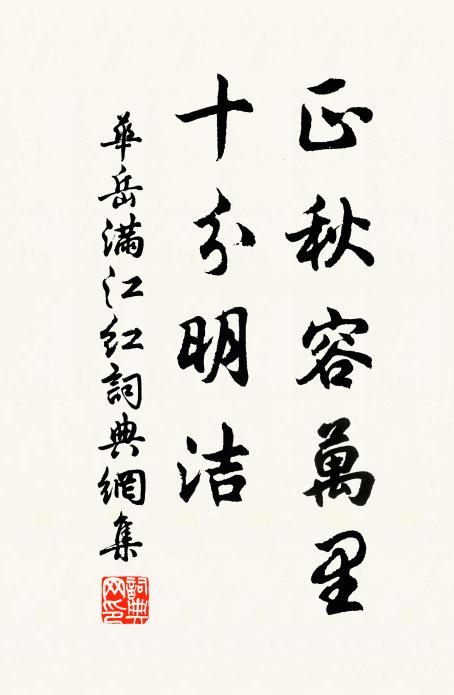 正秋容萬里
十分明洁
華岳滿江紅詞典網集
詞典网印